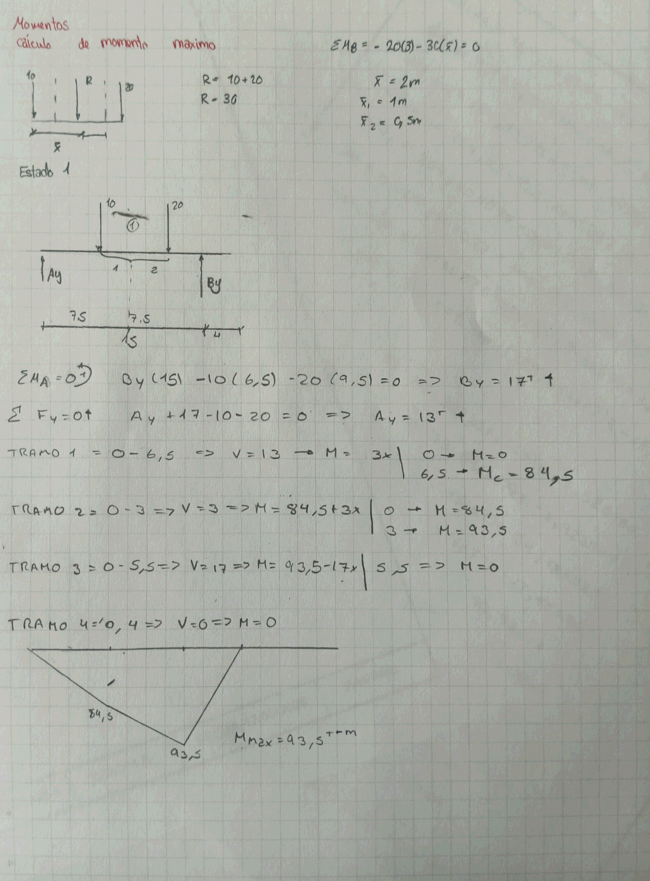 Momentos
cálculo de momento maximo
ΣMB = - 20(3) - 30(x̄) = 0
10 R 20
R = 10+20
R = 30
x̄ = 2m
x̄1 = 1m
x̄2 = 0,5m
x̄
Estado 1
10 20
①
1 2
Ay By
7.5 7.5 4
15
ΣMA = 0 By (15) - 10 (6,5) - 20 (9,5) = 0 => By = 17T ↑
Σ Fy = 0↑ Ay + 17 - 10 - 20 = 0 => Ay = 13T ↑
TRAMO 1 = 0 - 6,5 => V = 13 → M = 3x | 0 → M = 0
6,5 → Mc = 84,5
TRAMO 2 = 0 - 3 => V = 3 => M = 84,5 + 3x | 0 → M = 84,5
3 → M = 93,5
TRAMO 3 = 0 - 5,5 => V = 17 => M = 93,5 - 17x | 5,5 => M = 0
TRAMO 4 = 0,4 => V = 0 => M = 0
84,5
93,5
Mmax = 93,5 T-m